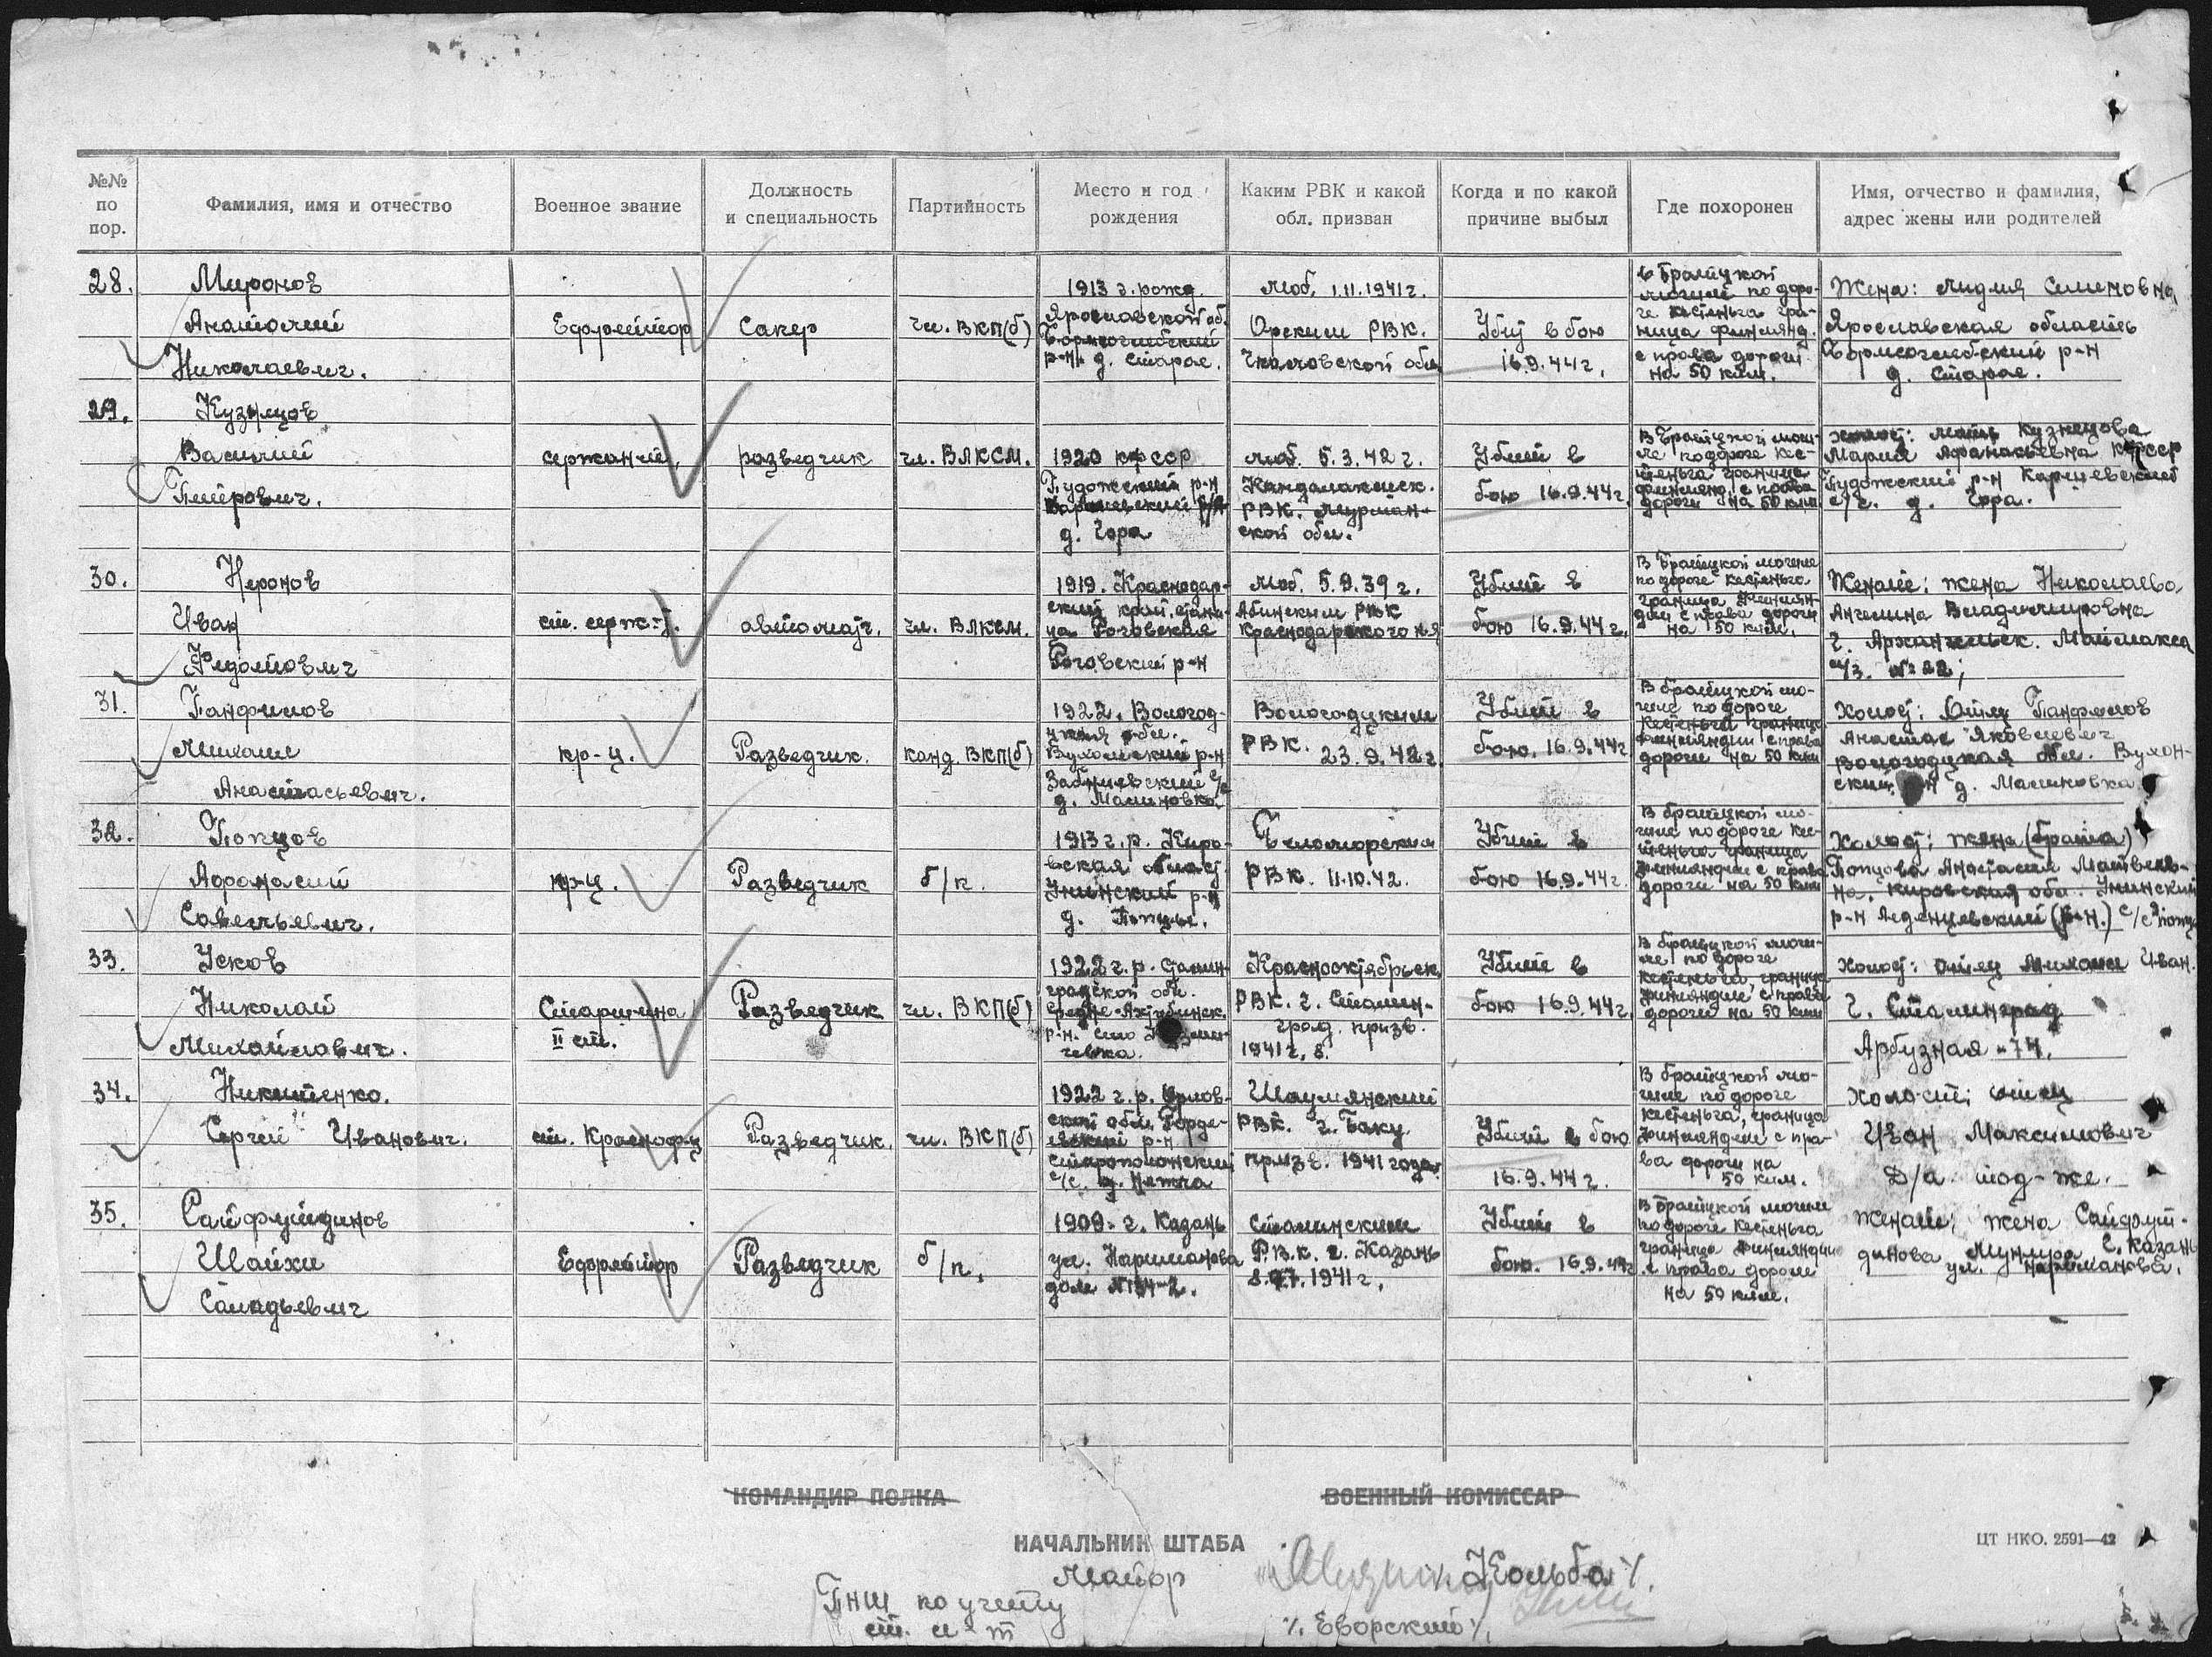 №№ по пор.
Фамилия, имя и отчество
Военное звание
Должность и специальность
Партийность
Место и год рождения
Каким РВК и какой обл. призван
Когда и по какой причине выбыл
Где похоронен
Имя, отчество и фамилия, адрес жены или родителей
28.
Миронов
Анатолий
Николаевич.
Ефрейтор
Сапер
чл. ВКП(б)
1913 г. рожд.
Ярославской об.
р-н. д. Старое.
Моб. 1.11.1941 г.
Орским РВК.
Чкаловской обл.
Убит в бою
16.9.44 г.
в братцкой
могиле по доро-
ге Кестеньга гра-
ница Финлянд.
с права дороги
на 50 клм.
Жена: Лидия Семеновна,
Ярославская область
р-н
д. Старое.
29.
Кузнецов
Василий
Петрович.
сержант.
разведчик
чл. ВЛКСМ.
1920 КФССР
Пудожский р-н
д. Гора
моб. 5.3.42 г.
Кандалакшск.
РВК. Мурман-
ской обл.
Убит в
бою 16.9.44 г.
В братцкой моги-
ле по дороге Кес-
теньга граница
Финлянд. с права
дороги на 50 клм
мать Кузнецова
Мария Афанасьевна КФССР
Пудожский р-н Каршевский
с/с. д. Гора.
30.
Неронов
Иван
Федотович
ст. серж-т.
автоматч.
чл. ВЛКСМ.
1919. Краснодар-
ский край, стани-
ца Роговская
Роговский р-н
моб. 5.9.39 г.
Абинским РВК
Краснодарского кр.
Убит в
бою 16.9.44 г.
В братцкой могиле
по дороге Кестеньга
граница Финлян-
дии с права дороги
на 50 клм.
Женат: жена Николаева
Ангелина Владимировна
г. Архангельск. Маймакса
л/з. № 22;
31.
Панфилов
Михаил
Анастасьевич.
кр-ц.
Разведчик.
канд. ВКП(б)
1922. Вологод-
цкая обл.
р-н
с/с
д. Малиновка.
Вологодцким
РВК.
23.9.42 г.
Убит в
бою. 16.9.44 г
В братцкой мо-
гиле по дороге
Кестеньга граница
Финляндии с права
дороги на 50 клм
Холост: Отец Панфилов
Анастас Яковлевич
Вологодцкая обл.
д. Малиновка
32.
Попцов
Афанасий
Савельевич.
кр-ц.
Разведчик
б/п.
1913 г. р. Киро-
вская област
Унинский р-н
д. Попцы.
Беломорским
РВК. 11.10.42.
Убит в
бою 16.9.44 г.
В братцкой мо-
гиле по дороге Кес-
теньга граница
Финляндии с права
дороги на 50 клм
Холост: жена (брата)
Попцова Анастасия Матвеев-
на. Кировская обл. Унинский
р-н (р-н.) с/с
33.
Усков
Николай
Михайлович.
Старшина
II ст.
Разведчик
чл. ВКП(б)
1922 г. р. Сталин-
градской обл.
Средне-Ахтубинск.
р-н.
Краснооктябрьск
РВК. г. Сталин-
град. призв.
1941 г.
Убит в
бою 16.9.44 г.
В братцкой моги-
ле по дороге
Кестеньга, граница
Финляндии с права
дороги на 50 клм
Холост: отец Михаил Иван.
г. Сталинград
Арбузная - 74.
34.
Никитенко.
Сергей Иванович.
ст. Краснофл-ц
Разведчик.
чл. ВКП(б)
1922 г. р. Орлов-
ской обл. Горде-
евский р-н
с/с.
Шаумянский
РВК. г. Баку
призв. 1941 года.
Убит в бою
16.9.44 г.
В братцкой мо-
гиле по дороге
Кестеньга, граница
Финляндии с пра-
ва дороги на
50 клм.
Холост; отец
Иван Максимович
Д/а. тод-же.
35.
Сайфутдинов
Шайхи
Ефрейтор
Разведчик
б/п.
1909. г. Казань
ул. Нариманова
дом
Сталинским
Р.В.К. г. Казань
1941 г.
Убит в
бою. 16.9.44 г
В братцкой могиле
по дороге Кестеньга
граница Финляндии
с права дороги
на 50 клм.
Женат; жена Сайфут-
динова г. Казань
ул. Нариманова.
КОМАНДИР ПОЛКА
ВОЕННЫЙ КОМИССАР
НАЧАЛЬНИК ШТАБА
майор
/Кольба/.
ЦТ НКО. 2591—42
ПНШ по учету
ст. л-т
/. Еворский /.